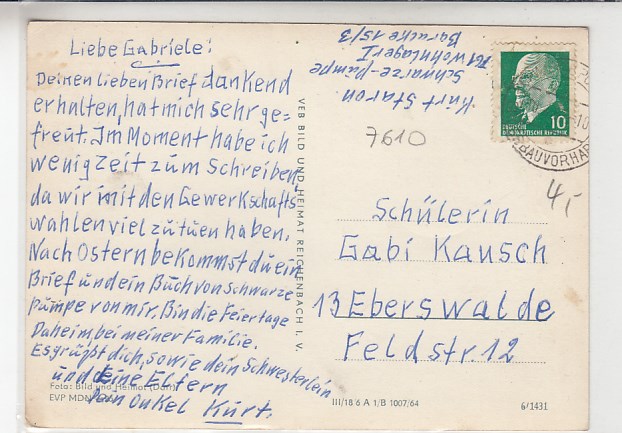 Liebe Gabriele!
Deinen lieben Brief dankend
erhalten, hat mich sehr ge=
freut. Im Moment habe ich
wenig Zeit zum Schreiben,
da wir mit den Gewerkschafts
wahlen viel zu tuen haben.
Nach Ostern bekommst du ein
Brief und ein Buch von Schwarze
Pumpe von mir. Bin die Feiertage
Daheim bei meiner Familie.
Es grüßt dich, sowie dein Schwesterlein
und deine Eltern
Dein Onkel Kurt.
Foto: Bild und Heimat (Darr)
EVP MDN
VEB BILD UND HEIMAT REICHENBACH I. V.
Kurt Staron
Schwarze-Pumpe
761 Wohnlager I
Baracke 15/3
7610
10
DEUTSCHE
DEMOKRATISCHE REPUBLIK
BAUVORHAB
4,-
Schülerin
Gabi Kausch
13 Eberswalde
Feldstr. 12
III/18 6 A 1/B 1007/64
6/1431